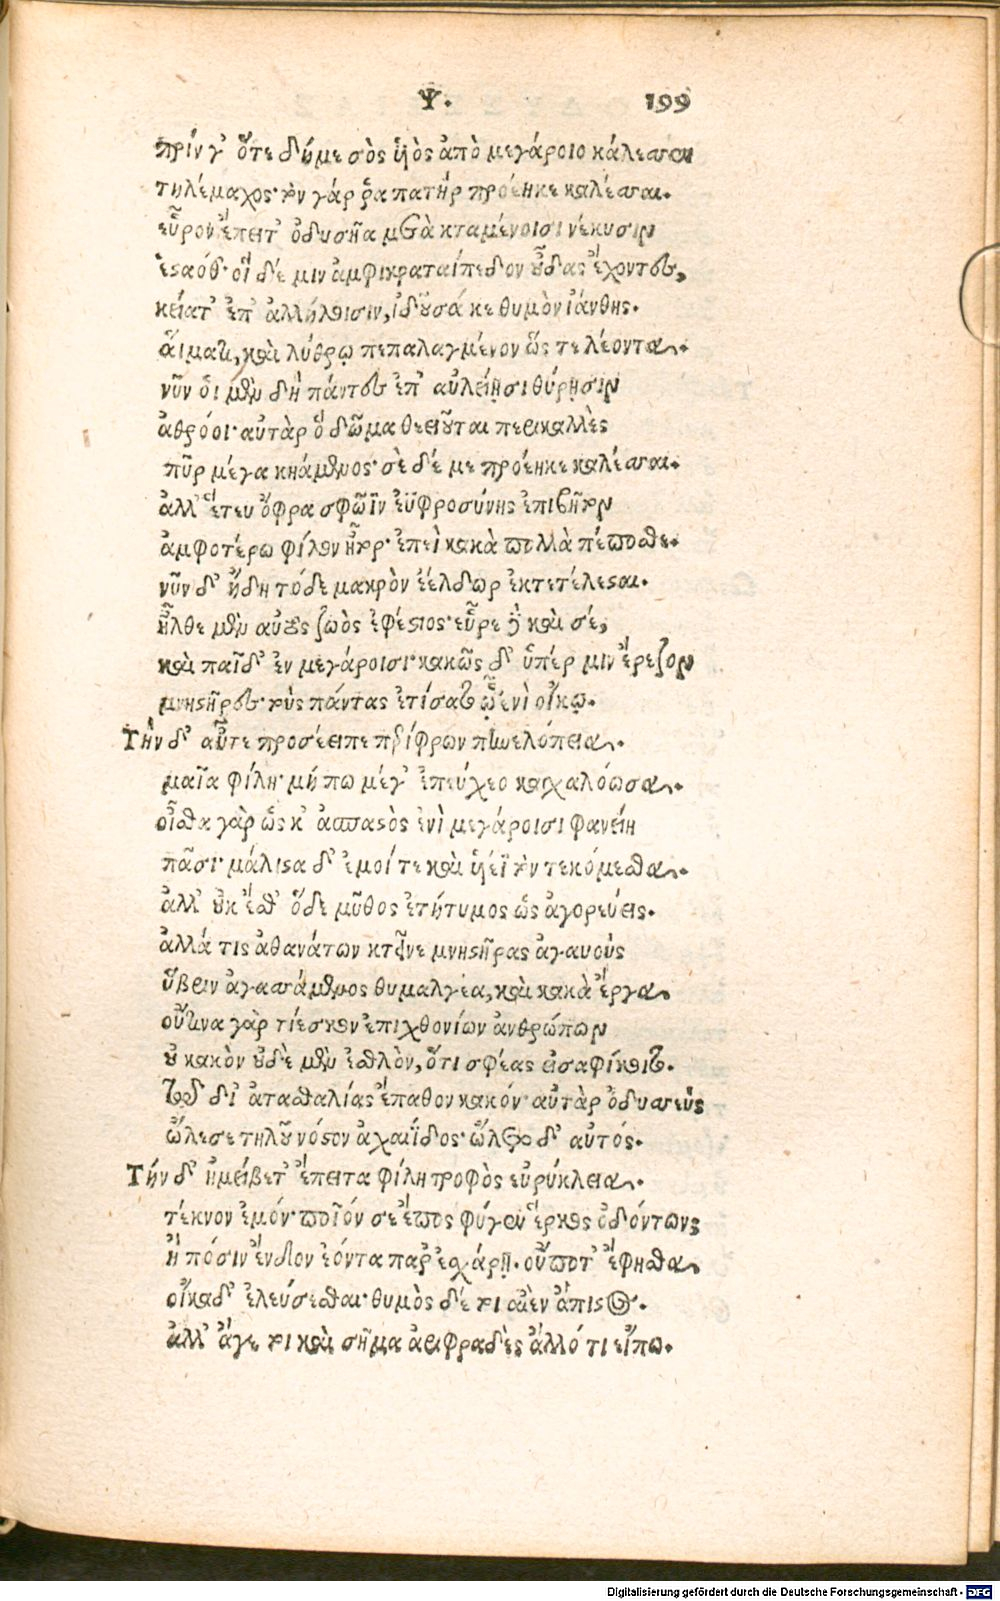 Ψ. 199
πρίν γ' ὅτε δή με σὸς ὑὸς ἀπὸ μεγάροιο κάλεσσεν
τηλέμαχος· τὸν γάρ ῥα πατὴρ προέηκε καλέσσαι.
εὗρον ἔπειτ' ὀδυσῆα μετὰ κταμένοισι νέκυσιν
ἑσταόθ'· οἱ δέ μιν ἀμφὶ κραταίπεδον οὖδας ἔχοντες,
κείατ' ἐπ' ἀλλήλοισιν, ἰδοῦσά κε θυμὸν ἰάνθης.
αἵματι, καὶ λύθρῳ πεπαλαγμένον ὥς τε λέοντα.
νῦν δ' οἱ μὲν δὴ πάντες ἐπ' αὐλείῃσι θύρῃσιν
ἀθρόοι· αὐτὰρ ὃ δῶμα θεειοῦται περικαλλὲς
πῦρ μέγα κηάμενος· σὲ δέ με προέηκε καλέσσαι.
ἀλλ' ἕπευ ὄφρα σφῶϊν ἐϋφροσύνης ἐπιβῆτον
ἀμφοτέρω φίλον ἦτορ· ἐπεὶ κακὰ πολλὰ πέποσθε.
νῦν δ' ἤδη τόδε μακρὸν ἐέλδωρ ἐκτετέλεσται.
ἦλθε μὲν αὐτὸς ζωὸς ἐφέστιος· εὗρε δὲ καὶ σέ,
καὶ παῖδ' ἐν μεγάροισι· κακῶς δ' ὕπέρ μιν ἔρεζον
μνηστῆρες· τοὺς πάντας ἐτίσατο ᾧ ἐνὶ οἴκῳ.
Τὴν δ' αὖτε προσέειπε περίφρων πηνελόπεια.
μαῖα φίλη· μή πω μέγ' ἐπεύχεο καγχαλόωσα.
οἶσθα γὰρ ὥς κ' ἀσπαστὸς ἐνὶ μεγάροισι φανείη
πᾶσι· μάλιστα δ' ἐμοί τε καὶ ὑέϊ τὸν τεκόμεσθα.
ἀλλ' οὐκ ἔσθ' ὅδε μῦθος ἐτήτυμος ὡς ἀγορεύεις.
ἀλλά τις ἀθανάτων κτεῖνε μνηστῆρας ἀγαυοὺς
ὕβριν ἀγασσάμενος θυμαλγέα, καὶ κακὰ ἔργα.
οὔτινα γὰρ τίεσκον ἐπιχθονίων ἀνθρώπων
οὐ κακὸν οὐδὲ μὲν ἐσθλὸν, ὅτι σφέας εἰσαφίκοιτο.
τῷ δι' ἀτασθαλίας ἔπαθον κακόν· αὐτὰρ ὀδυσσεὺς
ὤλεσε τηλοῦ νόστον ἀχαιΐδος· ὤλετο δ' αὐτός.
Τήν δ' ἠμείβετ' ἔπειτα φίλη τροφὸς εὐρύκλεια.
τέκνον ἐμόν· ποῖόν σε ἔπος φύγεν ἕρκος ὀδόντων;
ἣ πόσιν ἔνδον ἐόντα παρ' ἐσχάρῃ. οὔποτ' ἔφησθα
οἴκαδ' ἐλεύσεσθαι· θυμὸς δέ τοι αἰὲν ἄπιστος.
ἀλλ' ἄγε τοι καὶ σῆμα ἀριφραδὲς ἄλλό τι εἴπω.
Digitalisierung gefördert durch die Deutsche Forschungsgemeinschaft - DFG